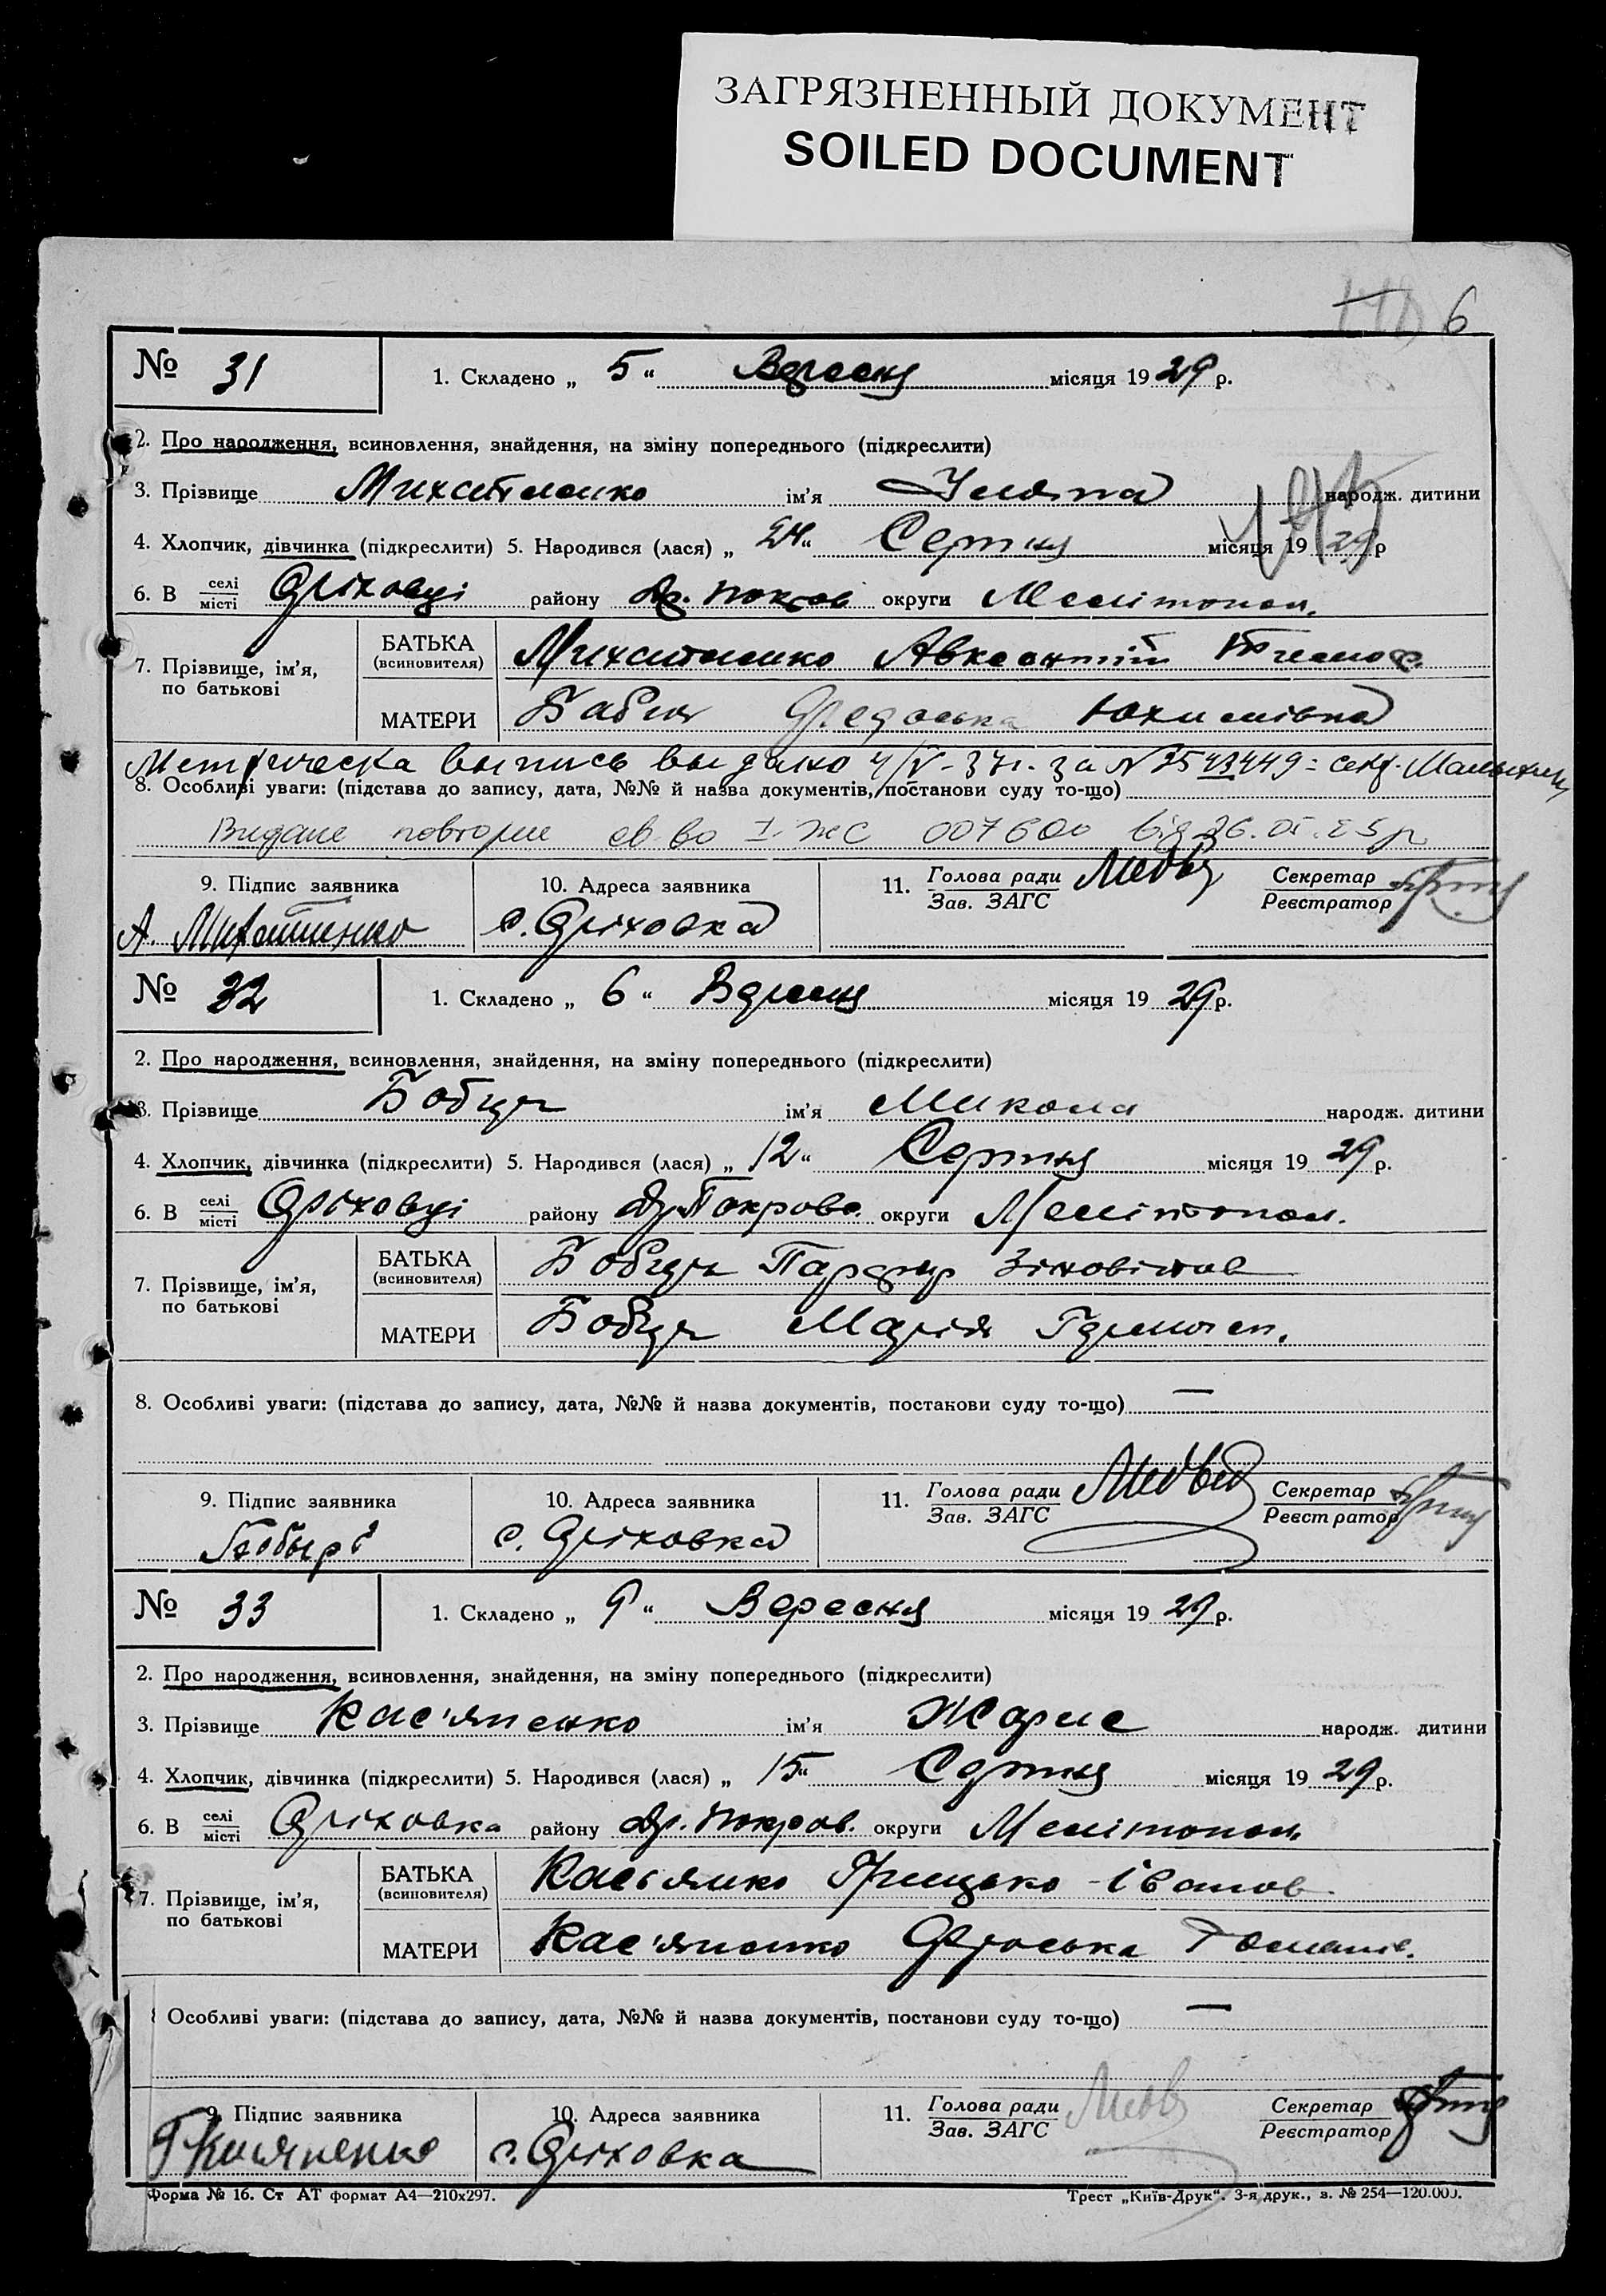 ЗАГРЯЗНЕННЫЙ ДОКУМЕНТ
SOILED DOCUMENT
6
№ 31
1. Складено „ 5 “ Вересня місяця 19 29 р.
2. Про народження, всиновлення, знайдення, на зміну попереднього (підкреслити)
3. Прізвище ім'я Уляна народж. дитини
4. Хлопчик, дівчинка (підкреслити) 5. Народився (лася) „ 24 “ Серпня місяця 19 29 р
6. В селі/місті Оріховці району Др. Покров округи Мелітопол.
7. Прізвище, ім'я, по батькові
БАТЬКА (всиновителя) Авксентій
МАТЕРИ Федоська Юхимівна
Метрическа выпись выдано 4/IV-37г. за №
8. Особливі уваги: (підстава до запису, дата, №№ й назва документів, постанови суду то-що)
Видане повторне св-во I-ЖС 007600 від
9. Підпис заявника
10. Адреса заявника
11. Голова ради/Зав. ЗАГС
Секретар/Реєстратор
с. Оріховка
№ 32
1. Складено „ 6 “ Вересня місяця 19 29 р.
2. Про народження, всиновлення, знайдення, на зміну попереднього (підкреслити)
3. Прізвище ім'я Микола народж. дитини
4. Хлопчик, дівчинка (підкреслити) 5. Народився (лася) „ 12 “ Серпня місяця 19 29 р.
6. В селі/місті Оріховці району Др. Покрове. округи Мелітопол.
7. Прізвище, ім'я, по батькові
БАТЬКА (всиновителя) Парфир Зіновіїов
МАТЕРИ Марія
8. Особливі уваги: (підстава до запису, дата, №№ й назва документів, постанови суду то-що) —
9. Підпис заявника
10. Адреса заявника
11. Голова ради/Зав. ЗАГС
Секретар/Реєстратор
с. Оріховка
№ 33
1. Складено „ 9 “ Вересня місяця 19 29 р.
2. Про народження, всиновлення, знайдення, на зміну попереднього (підкреслити)
3. Прізвище Кас'яненко ім'я народж. дитини
4. Хлопчик, дівчинка (підкреслити) 5. Народився (лася) „ 15 “ Серпня місяця 19 29 р.
6. В селі/місті Оріховка району Др. Покров. округи Мелітопол.
7. Прізвище, ім'я, по батькові
БАТЬКА (всиновителя) Грицько Іванов
МАТЕРИ Кас'яненко Федоська
Особливі уваги: (підстава до запису, дата, №№ й назва документів, постанови суду то-що) —
9. Підпис заявника
10. Адреса заявника
11. Голова ради/Зав. ЗАГС
Секретар/Реєстратор
с. Оріховка
Форма № 16. Ст АТ формат А4—210х297.
Трест „Київ-Друк“. 3-я друк., з. № 254—120.000.